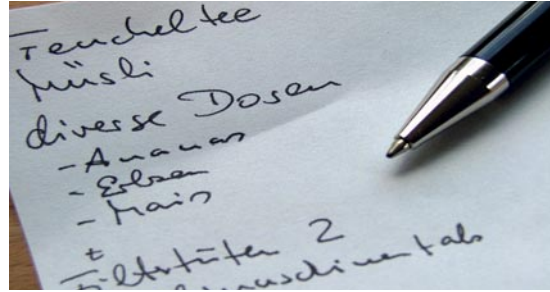 Fencheltee
Müsli
diverse Dosen
- Ananas
- Erbsen
- Mais
+
Filtertüten 2